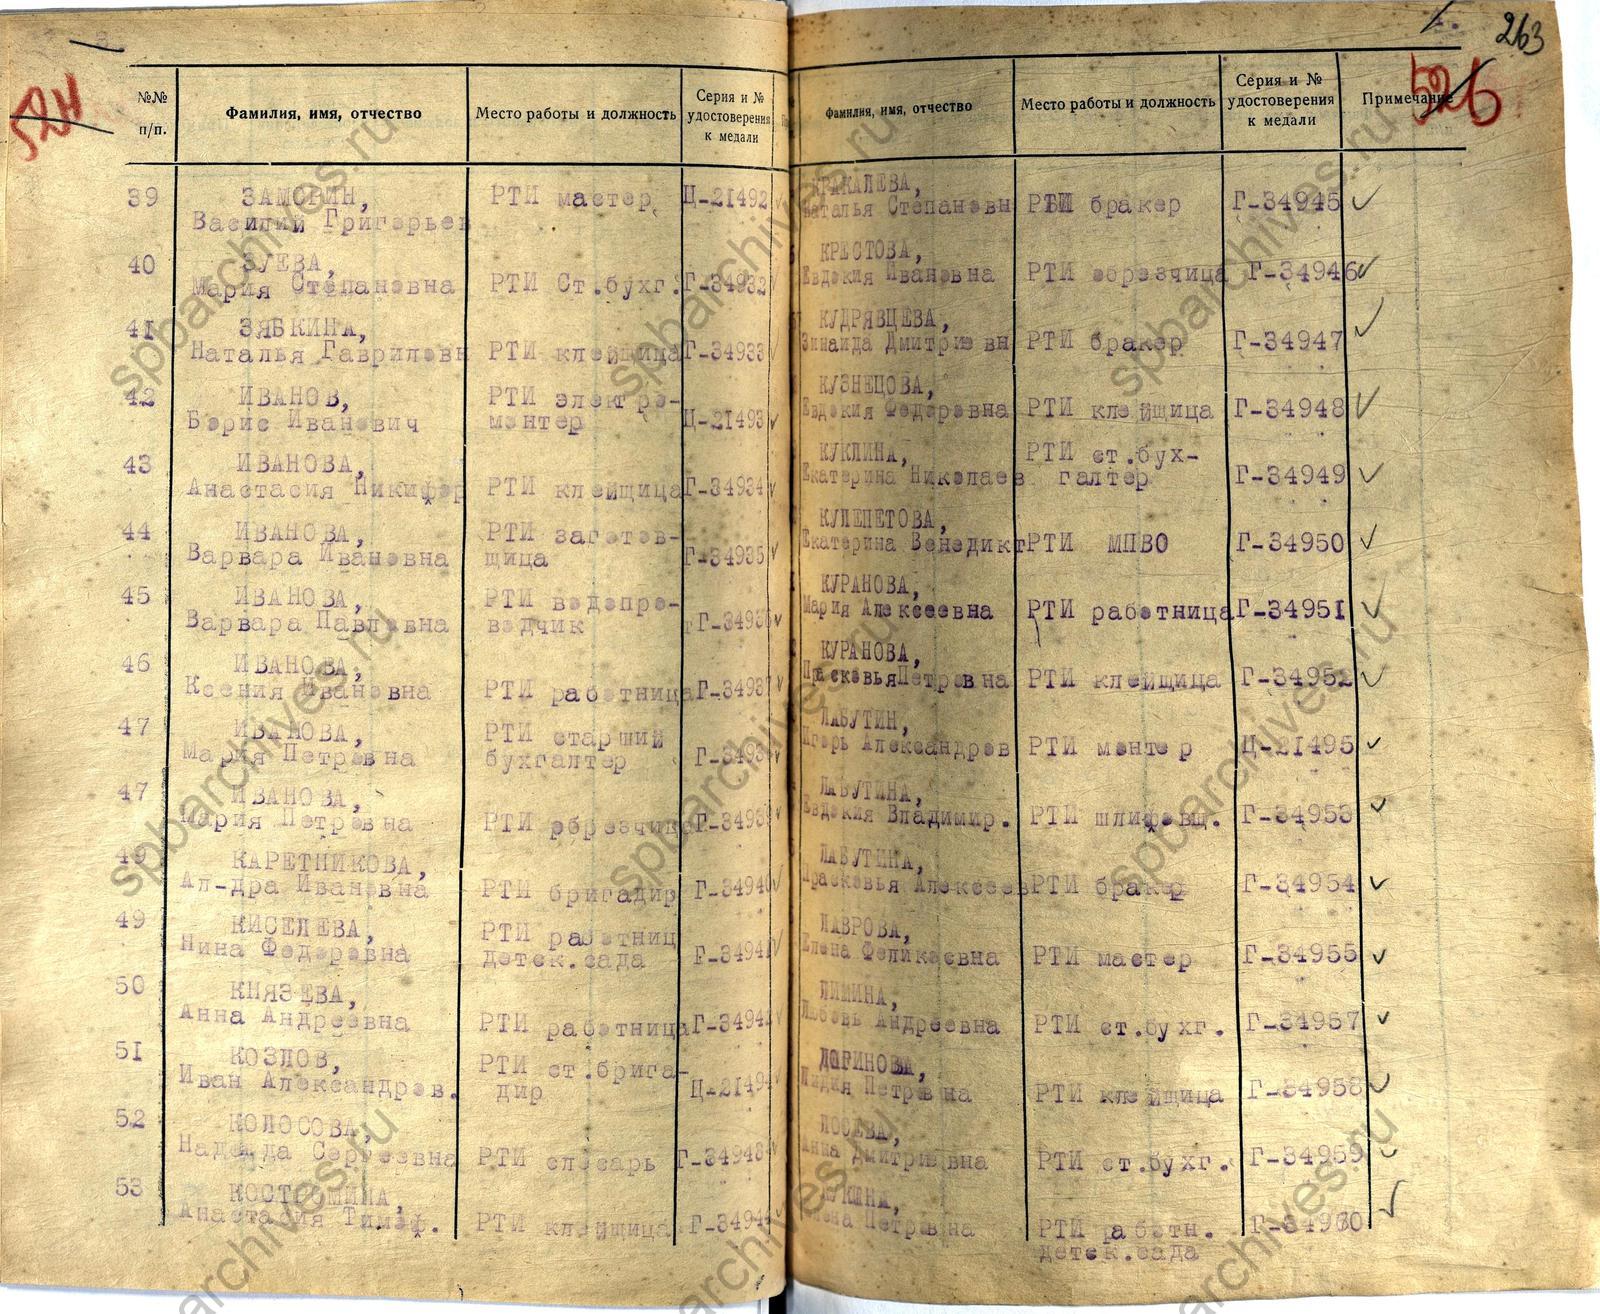 263
524
526
№№ п/п.
Фамилия, имя, отчество
Место работы и должность
Серия и № удостоверения к медали
39 ЗАМОРИН, РТИ мастер Ц-21492
Василий Григорьев
40 ЗУЕВА,
Мария Степановна РТИ Ст.бухг. Г-34932
41 ЗЯБКИНА,
Наталья Гавриловн РТИ клейщица Г-34933
42 ИВАНОВ, РТИ электро-
Борис Иванович монтер Ц-21493
43 ИВАНОВА,
Анастасия Никифор РТИ клейщица Г-34934
44 ИВАНОВА, РТИ заготов-
Варвара Ивановна щица Г-34935
45 ИВАНОВА, РТИ водопро-
Варвара Павловна водчик Г-34936
46 ИВАНОВА,
Ксения Ивановна РТИ работница Г-34937
47 ИВАНОВА, РТИ старший
Мария Петровна бухгалтер
47 ИВАНОВА,
Мария Петровна РТИ обрезчица
КАРЕТНИКОВА,
Ал-дра Ивановна РТИ бригадир Г-34940
49 КИСЕЛЕВА, РТИ работниц
Нина Федоровна детск.сада Г-34941
50 КНЯЗЕВА,
Анна Андреевна РТИ работница Г-34942
51 КОЗЛОВ, РТИ ст.брига-
Иван Александров. дир Ц-21494
52 КОЛОСОВА,
Надежда Сергеевна РТИ слесарь Г-34943
53 КОСТРОМИНА,
Анастасия Тимоф. РТИ клейщица Г-34944
Фамилия, имя, отчество
Место работы и должность
Серия и № удостоверения к медали
Примечание
Наталья Степановн РТИ бракер Г-34945
КРЕСТОВА,
Евдокия Ивановна РТИ обрезчица Г-34946
КУДРЯВЦЕВА,
Зинаида Дмитриевн РТИ бракер Г-34947
КУЗНЕЦОВА,
Евдокия Федоровна РТИ клейщица Г-34948
КУКЛИНА, РТИ ст.бух-
Екатерина Николаев галтер Г-34949
КУЛЕПЕТОВА,
Екатерина Венедикт РТИ МПВО Г-34950
КУРАНОВА,
Мария Алексеевна РТИ работница Г-34951
КУРАНОВА,
Прасковья Петровна РТИ клейщица Г-34952
ЛАБУТИН,
Игорь Александров РТИ монтер Ц-21495
ЛАБУТИНА,
Евдокия Владимир. РТИ шлифовщ. Г-34953
ЛАБУТИНА,
Прасковья Алексеев РТИ бракер Г-34954
ЛАВРОВА,
Елена Феликсевна РТИ мастер Г-34955
Любовь Андреевна РТИ ст.бухг. Г-34957
ЛОГИНОВА,
Лидия Петровна РТИ клейщица Г-34958
ЛОСЕВА,
Анна Дмитриевна РТИ ст.бухг. Г-34959
Петровна РТИ работн. Г-34960
детск.сада
spbarchives.ru
spbarchives.ru
spbarchives.ru
spbarchives.ru
spbarchives.ru
spbarchives.ru